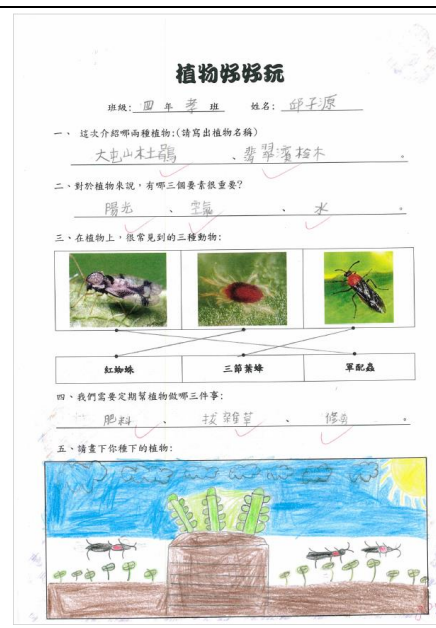 植物好好玩
班級: 四 年 孝 班 姓名: 邱子源
一、 這次介紹哪兩種植物:(請寫出植物名稱)
大屯山本土鵑 、翡翠濱柃木 。
二、對於植物來說,有哪三個要素很重要?
陽光 、 空氣 、 水 。
三、在植物上,很常見到的三種動物:
紅蜘蛛 三節葉蜂 軍配蟲
四、我們需要定期幫植物做哪三件事:
肥料 、 拔雜草 、 修剪 。
五、請畫下你種下的植物: